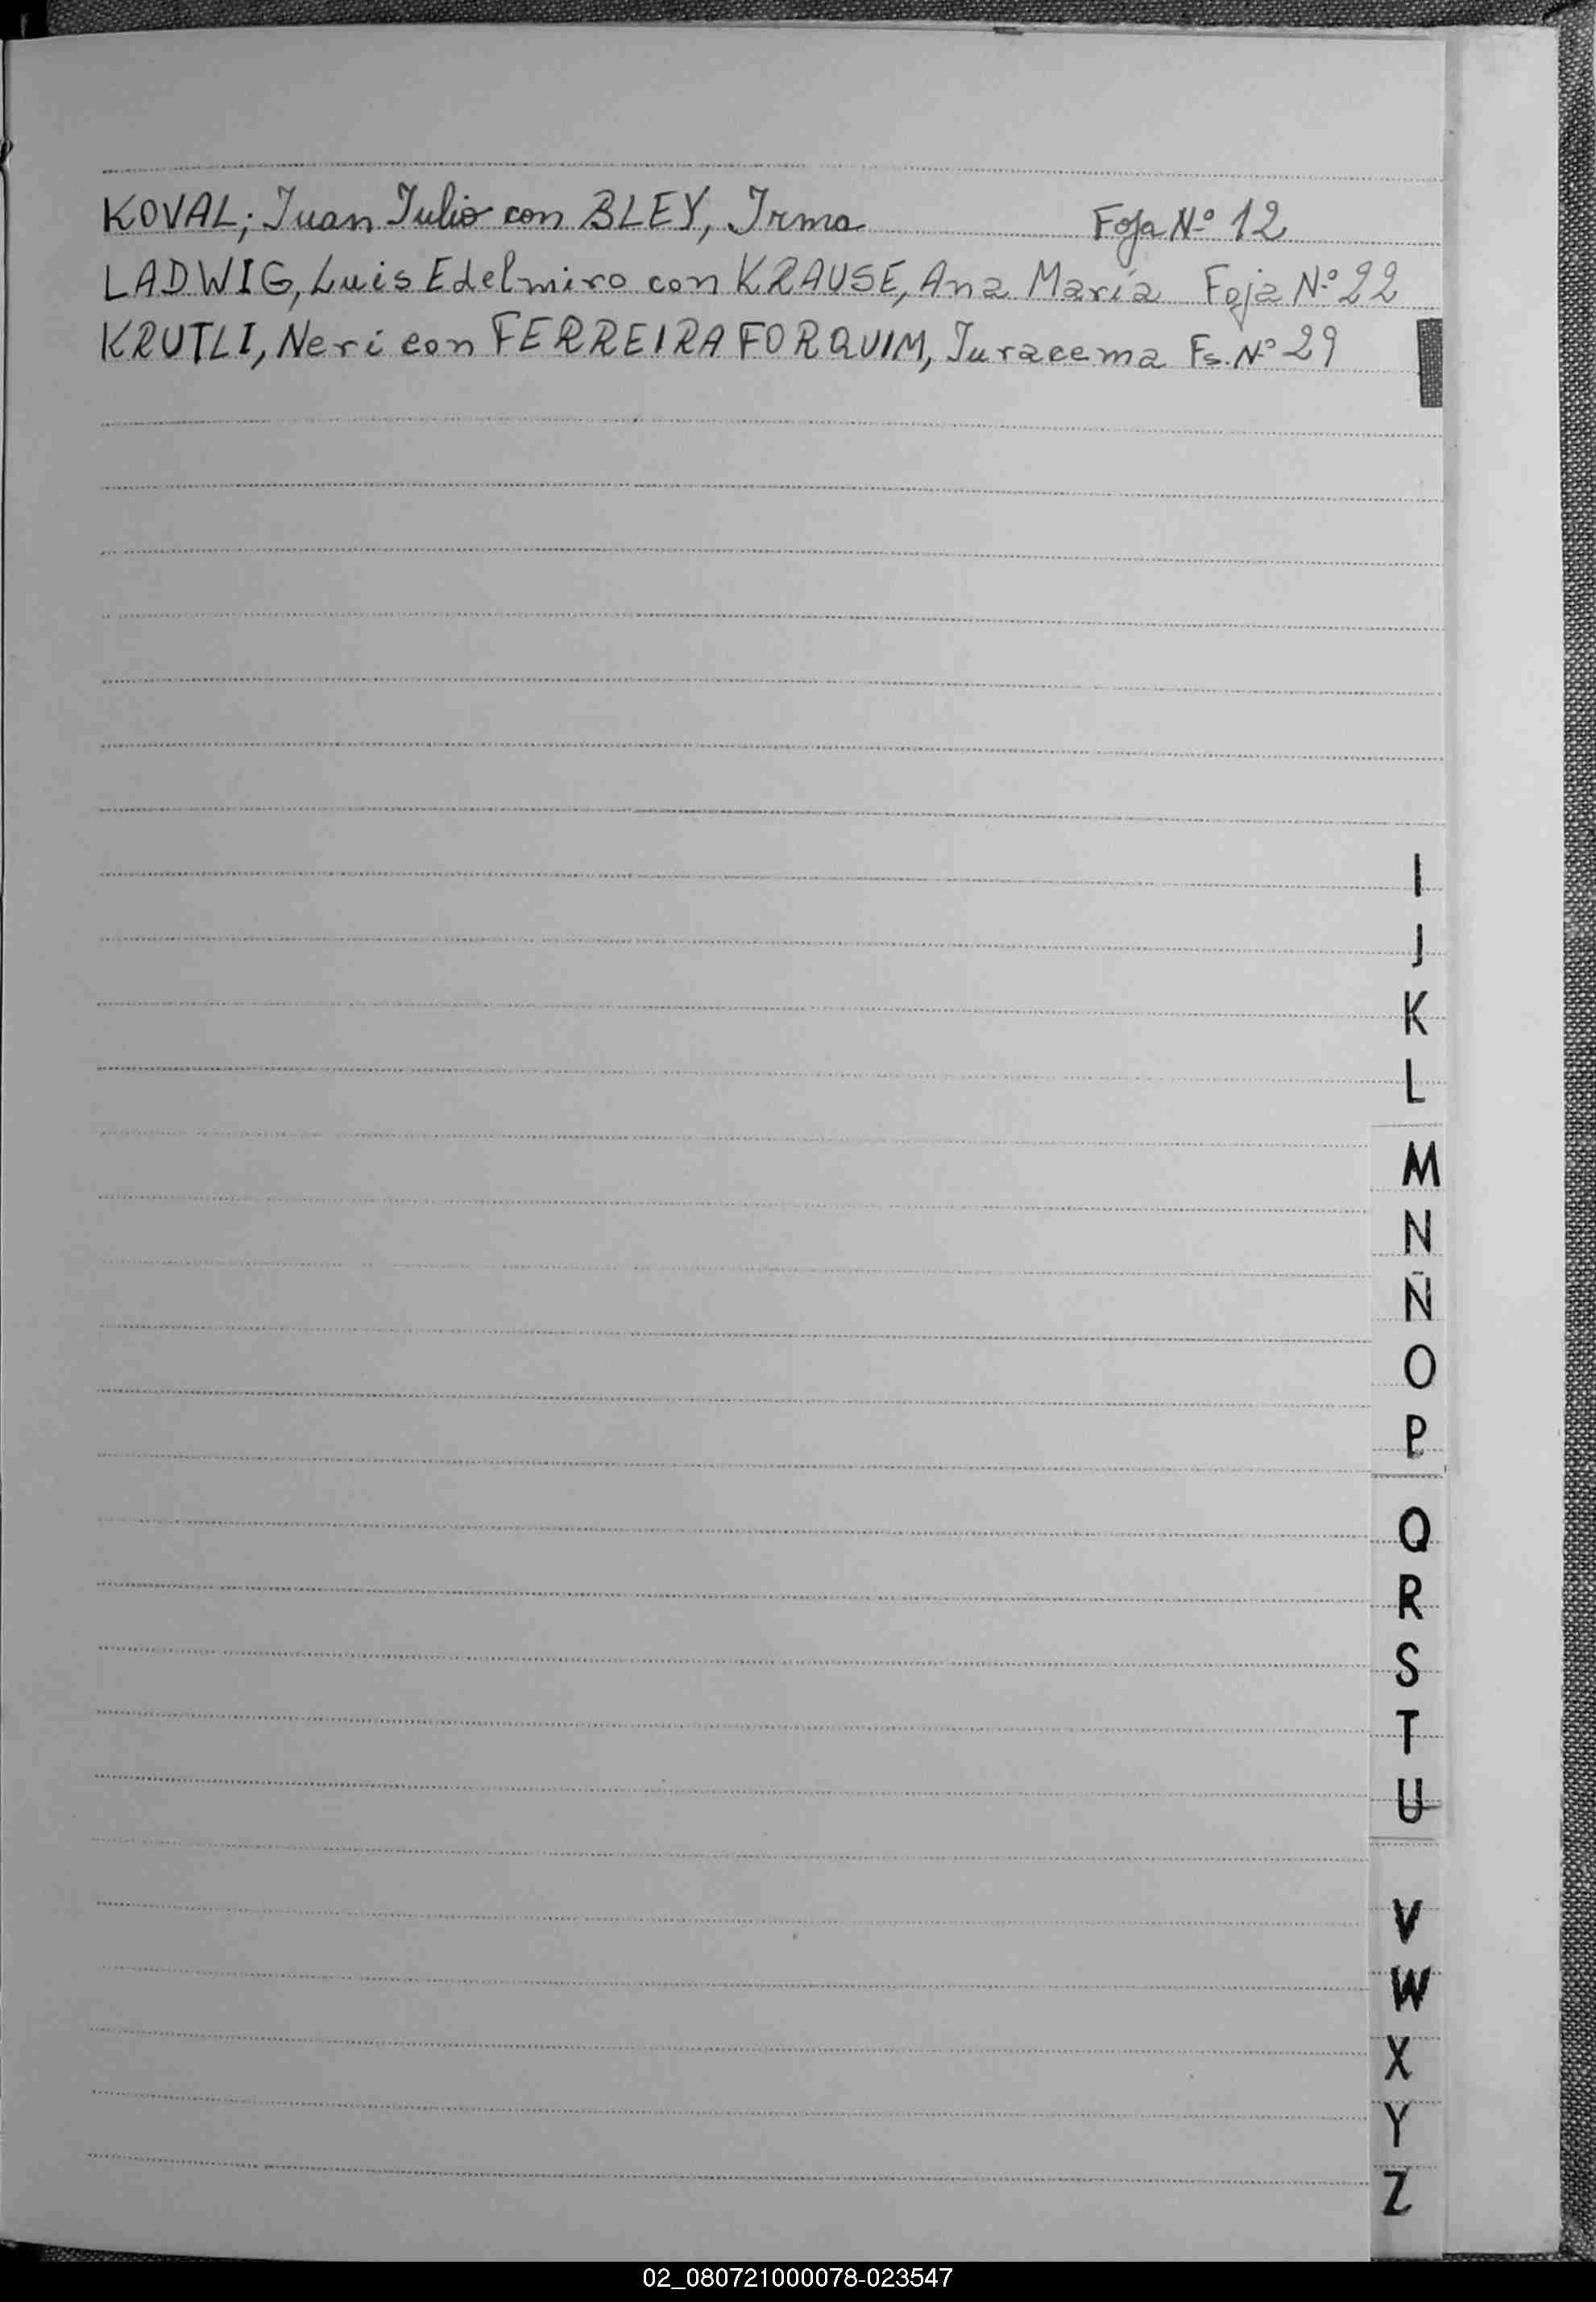 KOVAL; Juan Julio con BLEY, Irma Foja Nº 12
LADWIG, Luis Edelmiro con KRAUSE, Ana María Foja Nº 22
KRUTLI, Neri con FERREIRA FORQUIM, Juracema Fs. Nº 29
I
J
K
L
M
N
Ñ
O
P
Q
R
S
T
U
V
W
X
Y
Z
02_080721000078-023547